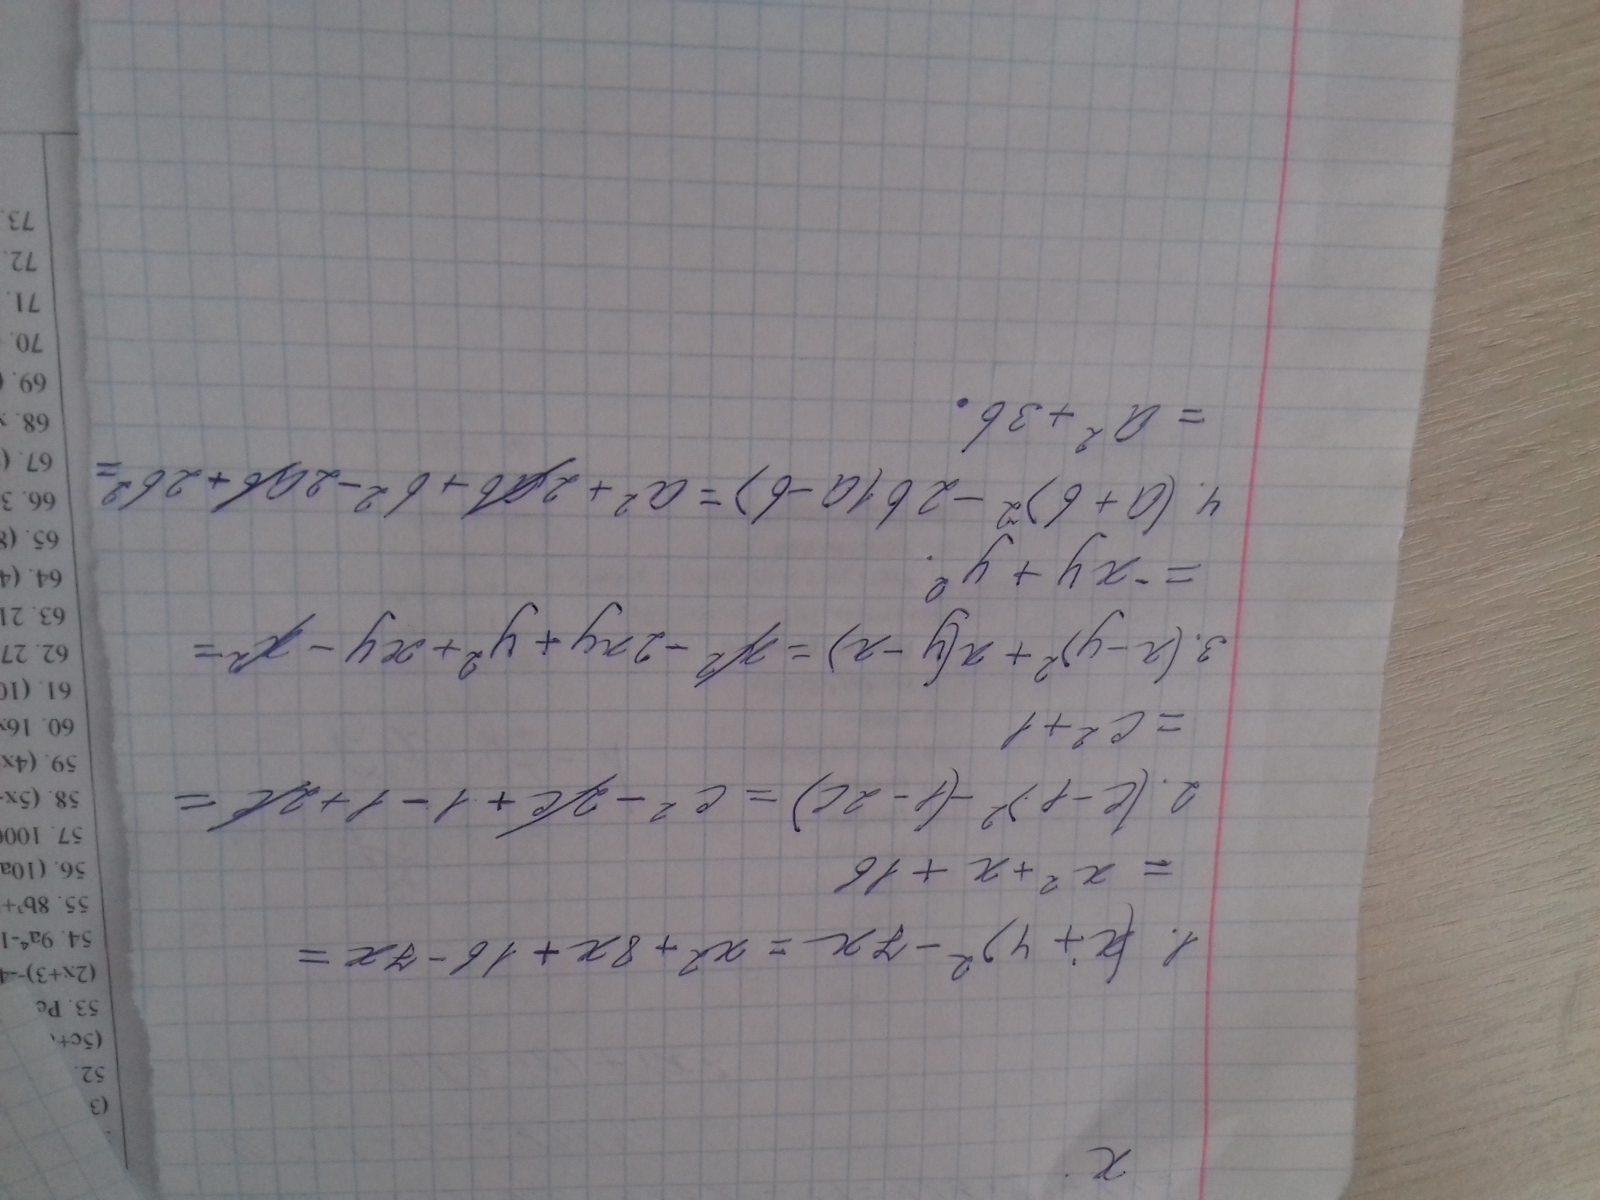 x
1. (x+4)² - 7x = x² + 8x + 16 - 7x =
= x² + x + 16
2. (c-1)² - (1-2c) = c² - 2c + 1 - 1 + 2c =
= c² + 1
3. (x-y)² + x(y-x) = x² - 2xy + y² + xy - x² =
= -xy + y²
4. (a+b)² - 2b(a-b) = a² + 2ab + b² - 2ab + 2b² =
= a² + 3b.
(3
52.
(5c+
53. Ре
(2x+3)-4
54. 9a⁴-1
55. 8b³+
56. (10a
57. 1000
58. (5x-
59. (4x
60. 16x
61. (10
62. 27
63. 21
64. (4
65. (8
66. 3
67. (
68. x
69. (
70.
71.
72.
73.